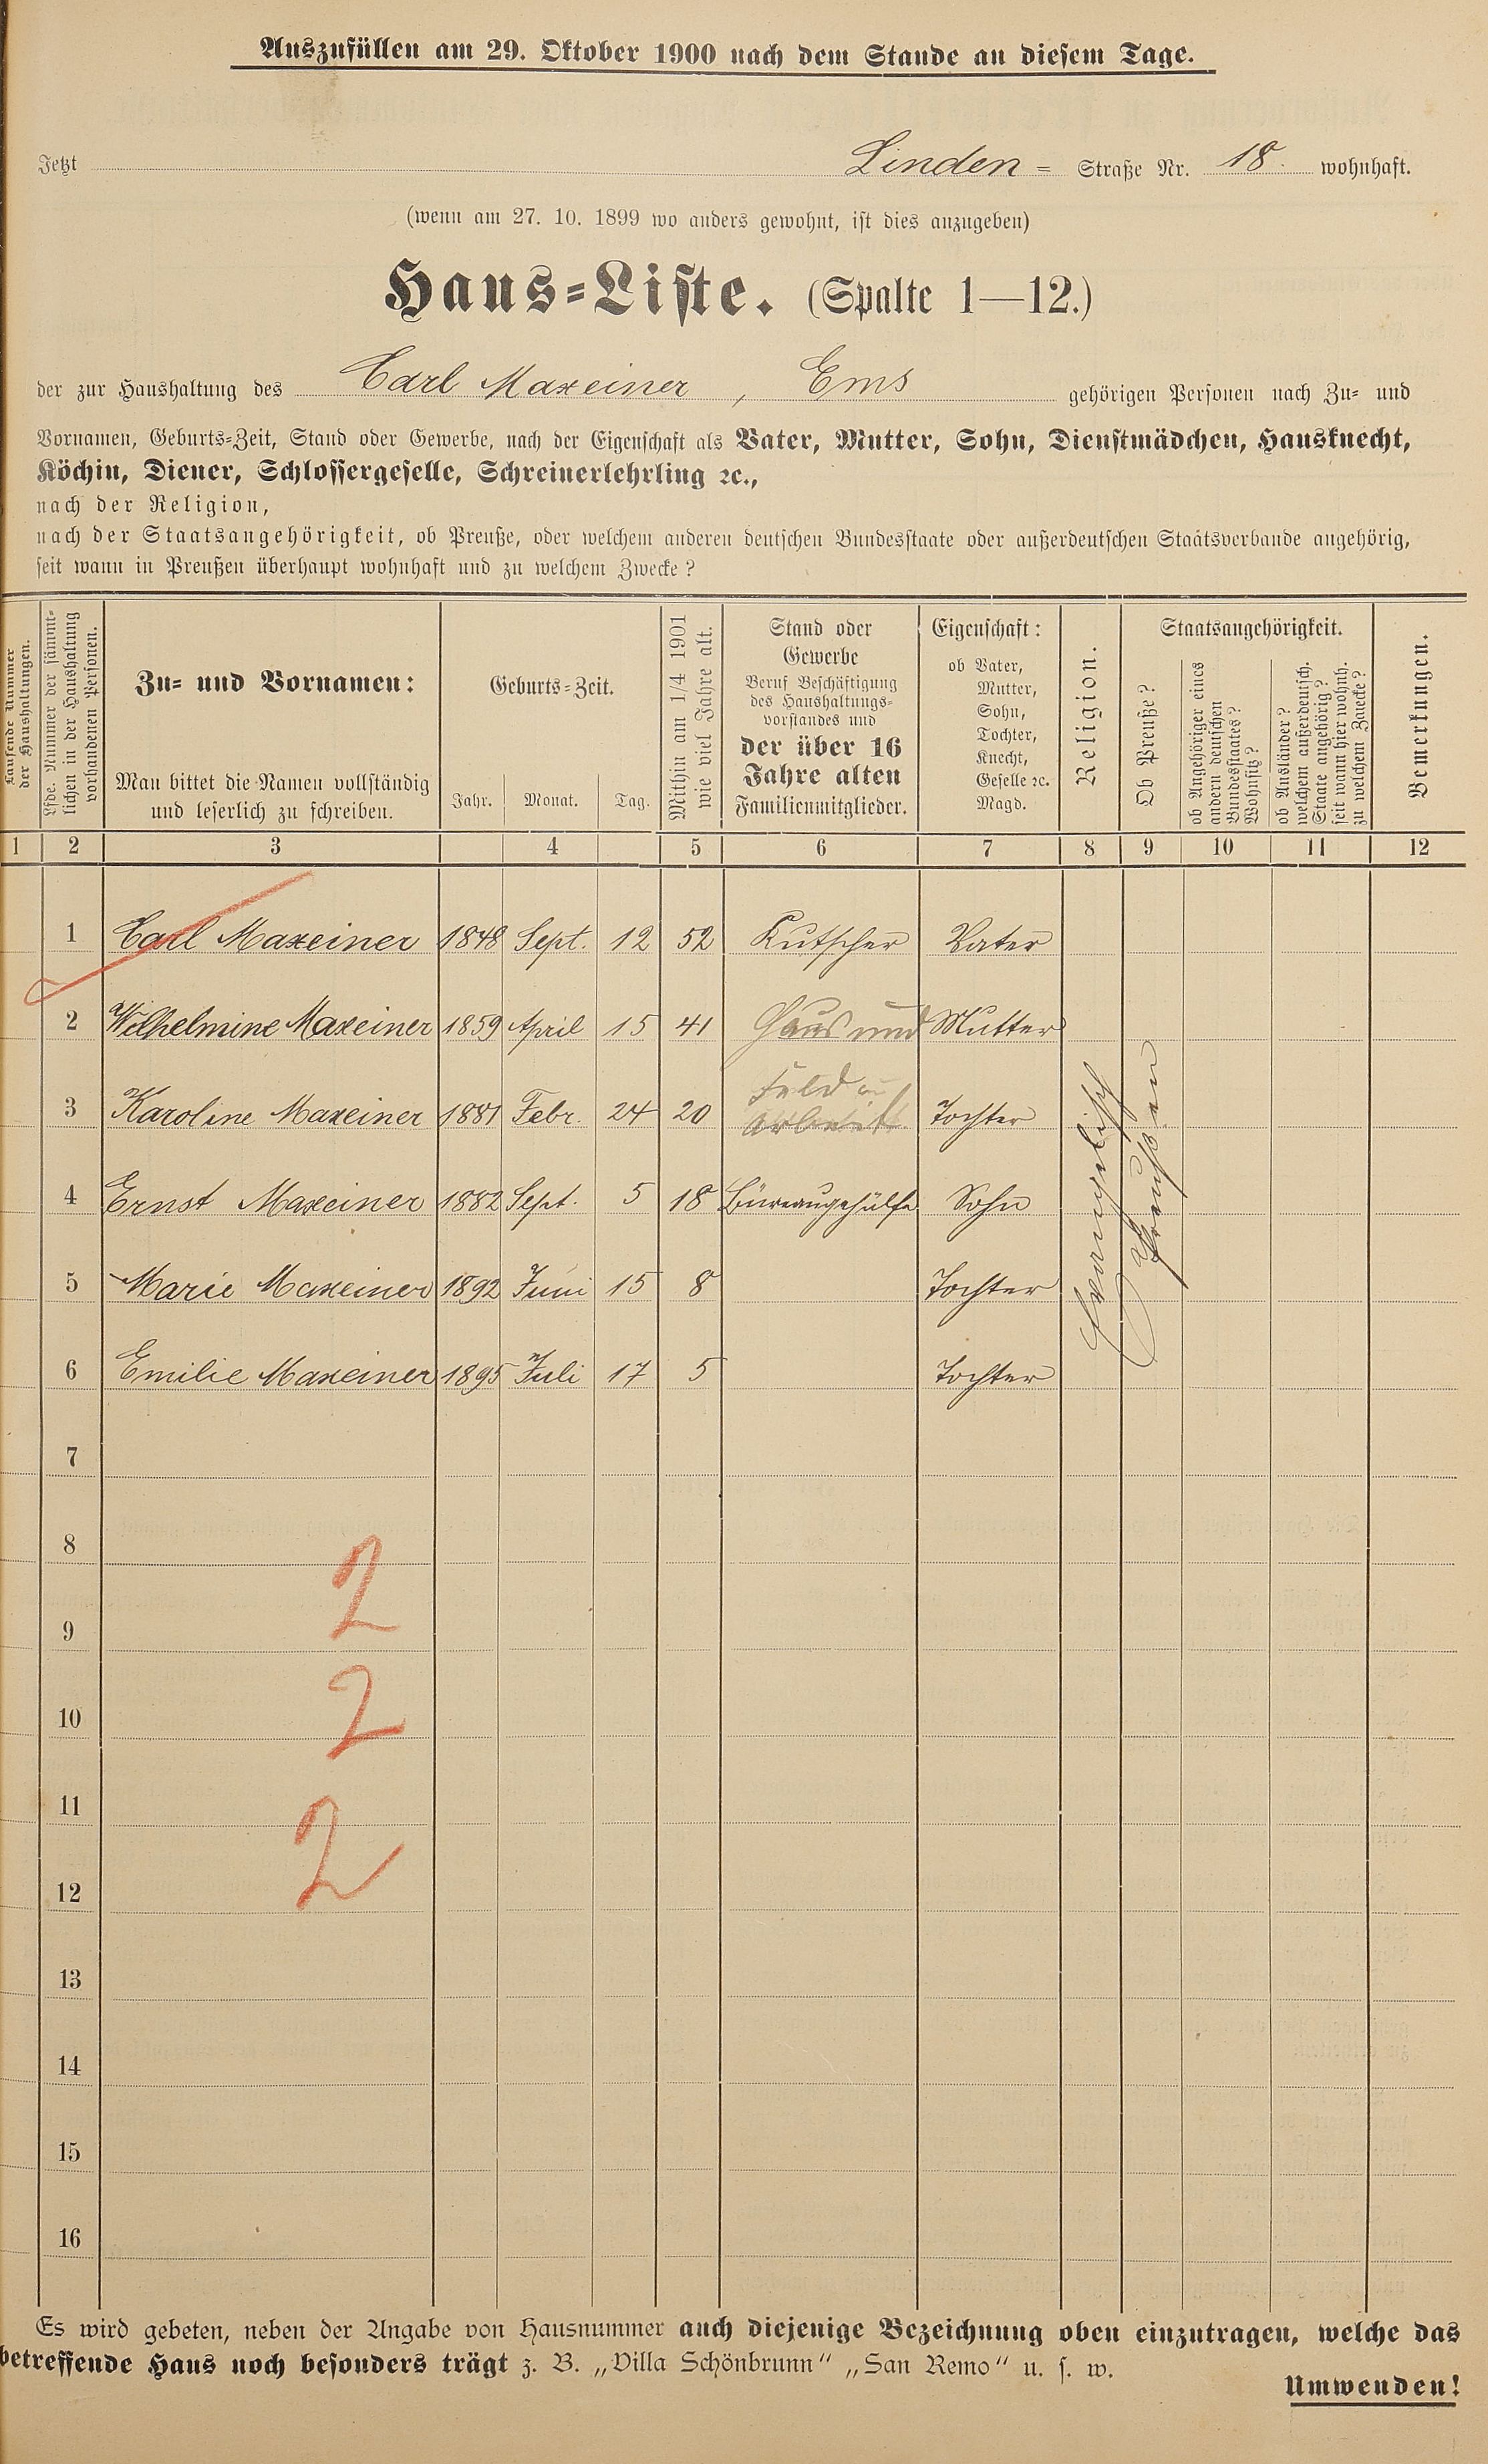 Auszufüllen am 29. Oktober 1900 nach dem Stande an diesem Tage.
Jetzt Linden = Straße Nr. 18. wohnhaft.
(wenn am 27. 10. 1899 wo anders gewohnt, ist dies anzugeben)
Haus=Liste. (Spalte 1—12.)
der zur Haushaltung des Carl Maxeiner, Ems gehörigen Personen nach Zu= und
Vornamen, Geburts=Zeit, Stand oder Gewerbe, nach der Eigenschaft als Vater, Mutter, Sohn, Dienstmädchen, Hausknecht,
Köchin, Diener, Schlossergeselle, Schreinerlehrling ꝛc.,
nach der Religion,
nach der Staatsangehörigkeit, ob Preuße, oder welchem anderen deutschen Bundesstaate oder außerdeutschen Staatsverbande angehörig,
seit wann in Preußen überhaupt wohnhaft und zu welchem Zwecke?
Laufende Nummer
der Haushaltungen.
Lfde. Nummer der sämmt=
lichen in der Haushaltung
vorhandenen Personen.
Zu= und Vornamen:
Man bittet die Namen vollständig
und leserlich zu schreiben.
Geburts=Zeit.
Jahr. Monat. Tag.
Mithin am 1/4 1901
wie viel Jahre alt.
Stand oder
Gewerbe
Beruf Beschäftigung
des Haushaltungs=
vorstandes und
der über 16
Jahre alten
Familienmitglieder.
Eigenschaft:
ob Vater,
Mutter,
Sohn,
Tochter,
Knecht,
Geselle ꝛc.
Magd.
Religion.
Staatsangehörigkeit.
Ob Preuße?
ob Angehöriger eines
andern deutschen
Bundesstaates?
Wohnsitz?
ob Ausländer?
welchem außerdeutsch.
Staate angehörig?
seit wann hier wohnh.
zu welchem Zwecke?
Bemerkungen.
1 2 3 4 5 6 7 8 9 10 11 12
1 Carl Maxeiner 1848 Sept. 12 52 Kutscher Vater
2 Wilhelmine Maxeiner 1859 April 15 41 Haus und Mutter
Feld
3 Karoline Maxeiner 1881 Febr. 24 20 Arbeit Tochter
4 Ernst Maxeiner 1882 Sept. 5 18 Büreaugehülfe Sohn
5 Marie Maxeiner 1892 Juni 15 8 Tochter
6 Emilie Maxeiner 1895 Juli 17 5 Tochter
evangelisch
Preußen
7
8
2
9
2
10
11
2
12
13
14
15
16
Es wird gebeten, neben der Angabe von Hausnummer auch diejenige Bezeichnung oben einzutragen, welche das
betreffende Haus noch besonders trägt z. B. „Villa Schönbrunn“ „San Remo“ u. s. w.
Umwenden!